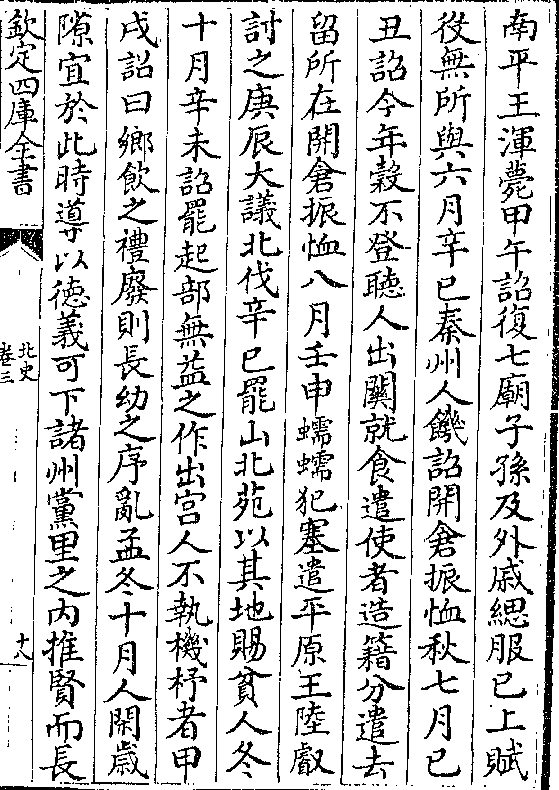 南平王渾薨甲午詔復七廟子孫及外戚緦服已上賦
役無所與六月辛巳秦州人饑詔開倉振恤秋七月己
丑詔今年穀不登聽人出關就食遣使者造籍分遣去
留所在開倉振恤八月壬申蠕蠕犯塞遣平原王陸叡
討之庚辰大議北伐辛巳罷山北苑以其地賜貧人冬
十月辛未詔罷起部無益之作出宮人不執機杼者甲
戌詔曰鄉飲之禮廢則長幼之序亂孟冬十月人閑歲
隙宜於此時導以德義可下諸州黨里之内推賢而長
欽定四庫全書
北史
卷三
十八